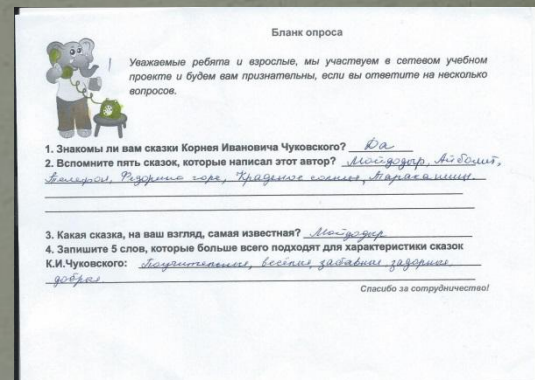 Бланк опроса
Уважаемые ребята и взрослые, мы участвуем в сетевом учебном
проекте и будем вам признательны, если вы ответите на несколько
вопросов.
1. Знакомы ли вам сказки Корнея Ивановича Чуковского? Да
2. Вспомните пять сказок, которые написал этот автор? Мойдодыр, Айболит,
Телефон, Федорино горе, Краденое солнце, Тараканище.
3. Какая сказка, на ваш взгляд, самая известная? Мойдодыр
4. Запишите 5 слов, которые больше всего подходят для характеристики сказок
К.И.Чуковского: Поучительные, весёлые, забавные, задорные,
добрые.
Спасибо за сотрудничество!